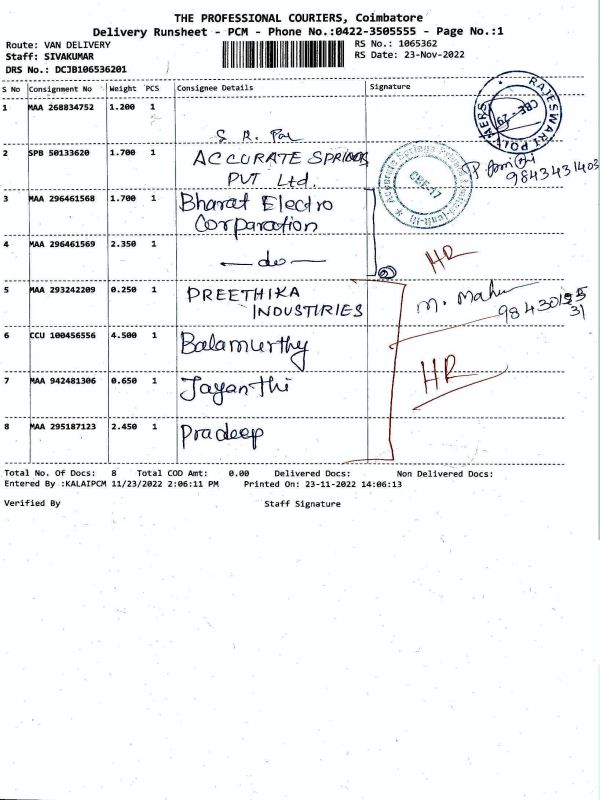 THE PROFESSIONAL COURIERS, Coimbatore
Delivery Runsheet - PCM - Phone No.:0422-3505555 - Page No.:1
Route: VAN DELIVERY
RS No.: 1065362
Staff: SIVAKUMAR
RS Date: 23-Nov-2022
DRS No.: DCJB106536201
S No Consignment No Weight PCS Consignee Details Signature
1 MAA 268834752 1.200 1
RAJESWARI POLYMERS
CBE - 29
2 SPB 50133620 1.700 1 ACCURATE SPRINGS
PVT Ltd.
CBE-17
9843431403
3 MAA 296461568 1.700 1 Bharat Electro
Corparation
4 MAA 296461569 2.350 1 — do —
HR
5 MAA 293242209 0.250 1 PREETHIKA
INDUSTIRIES
6 CCU 100456556 4.500 1 Balamurthy
7 MAA 942481306 0.650 1 Jayanthi
HR
8 MAA 295187123 2.450 1 Pradeep
Total No. Of Docs: 8 Total COD Amt: 0.00 Delivered Docs: Non Delivered Docs:
Entered By :KALAIPCM 11/23/2022 2:06:11 PM Printed On: 23-11-2022 14:06:13
Verified By Staff Signature